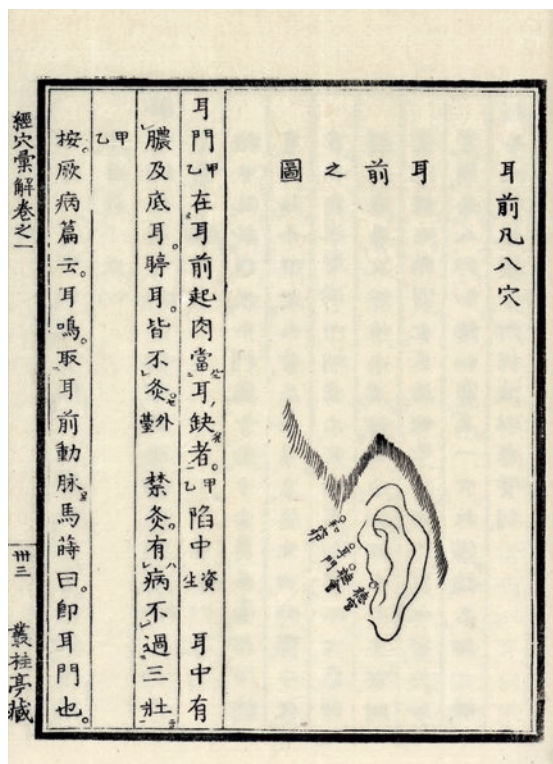 耳前凡八穴
耳前之圖
和窌
耳門
聽會
聽宮
耳門甲乙在耳前起肉當耳缺者。甲乙陷中資生耳中有
膿及底耳聤耳。皆不灸。外臺禁灸。有病不過三壯
甲乙
按厥病篇云。耳鳴。取耳前動脉。馬蒔曰。即耳門也。
經穴彙解卷之一
卅三
叢桂亭藏